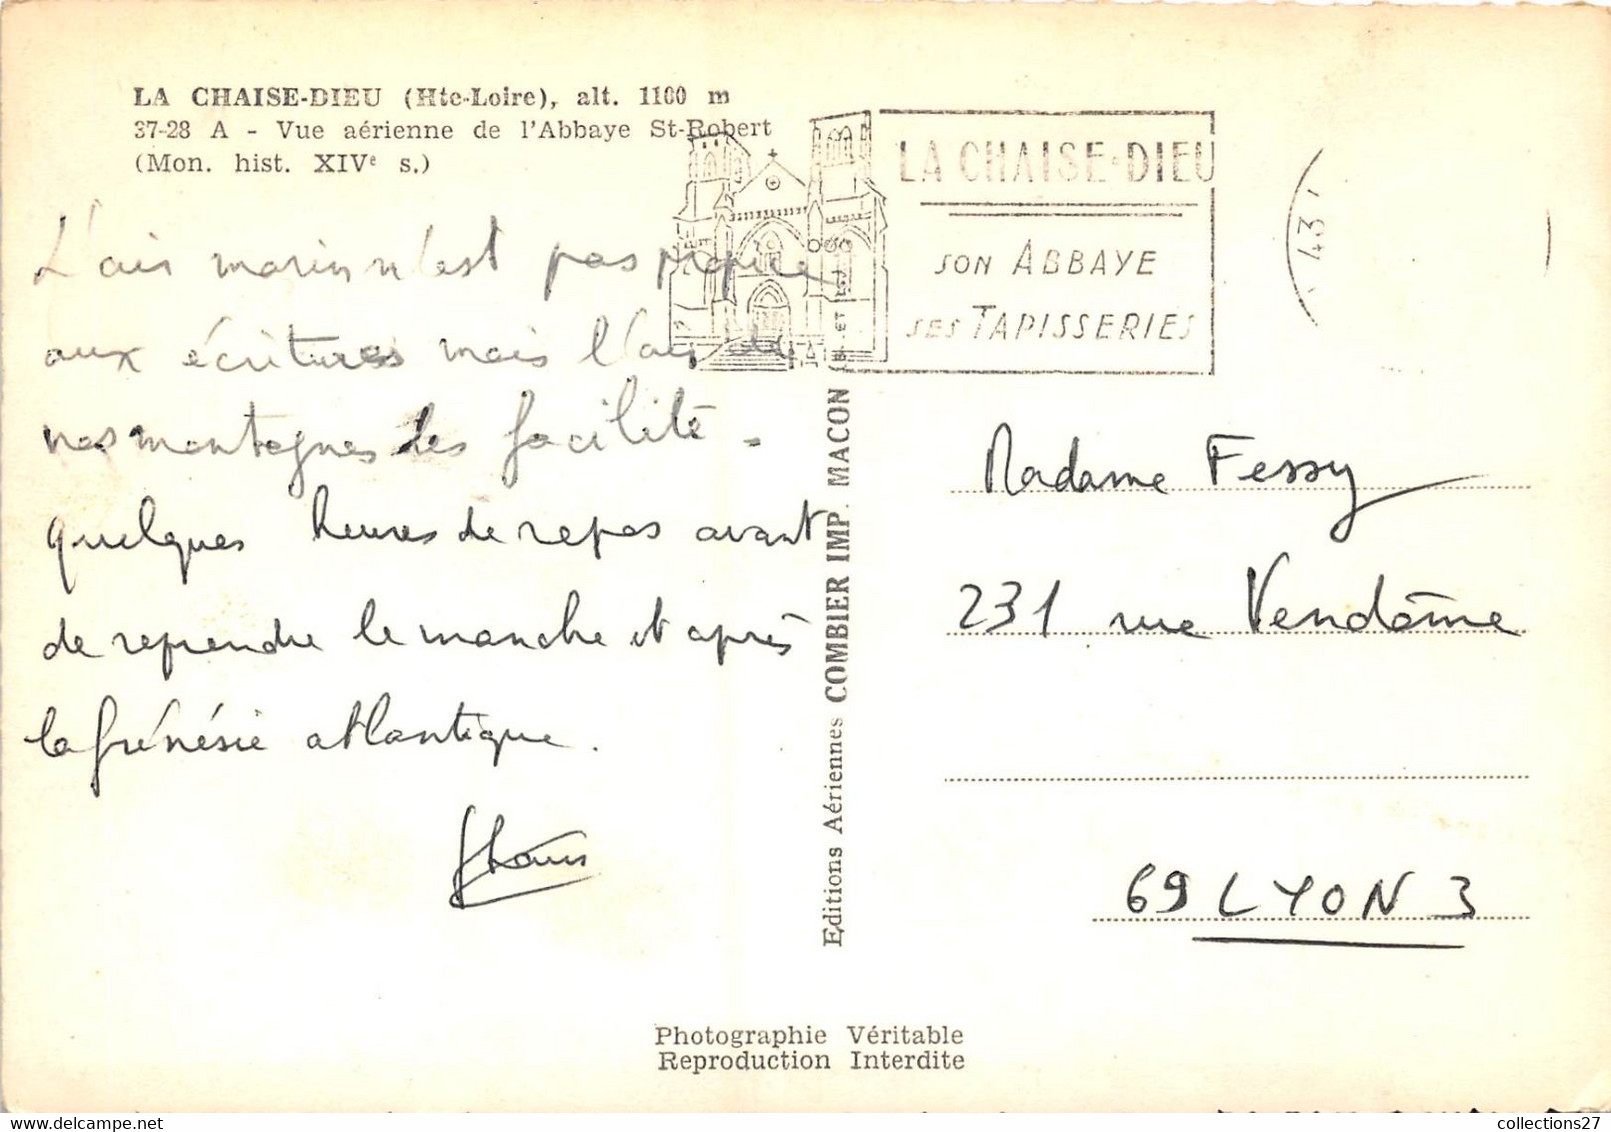 LA CHAISE-DIEU (Hte-Loire), alt. 1100 m
37-28 A - Vue aérienne de l'Abbaye St-Robert
(Mon. hist. XIVe s.)
LA CHAISE-DIEU
SON ABBAYE
SES TAPISSERIES
43
L'air marin n'est pas propice
aux écritures mais l'air de
nos montagnes les facilité.
quelques heures de repos avant
de reprendre le manche et après
la frénésie atlantique.
Editions Aériennes COMBIER IMP. MACON
Madame Fessy
231 rue Vendôme
69 LYON 3
Photographie Véritable
Reproduction Interdite
collections27